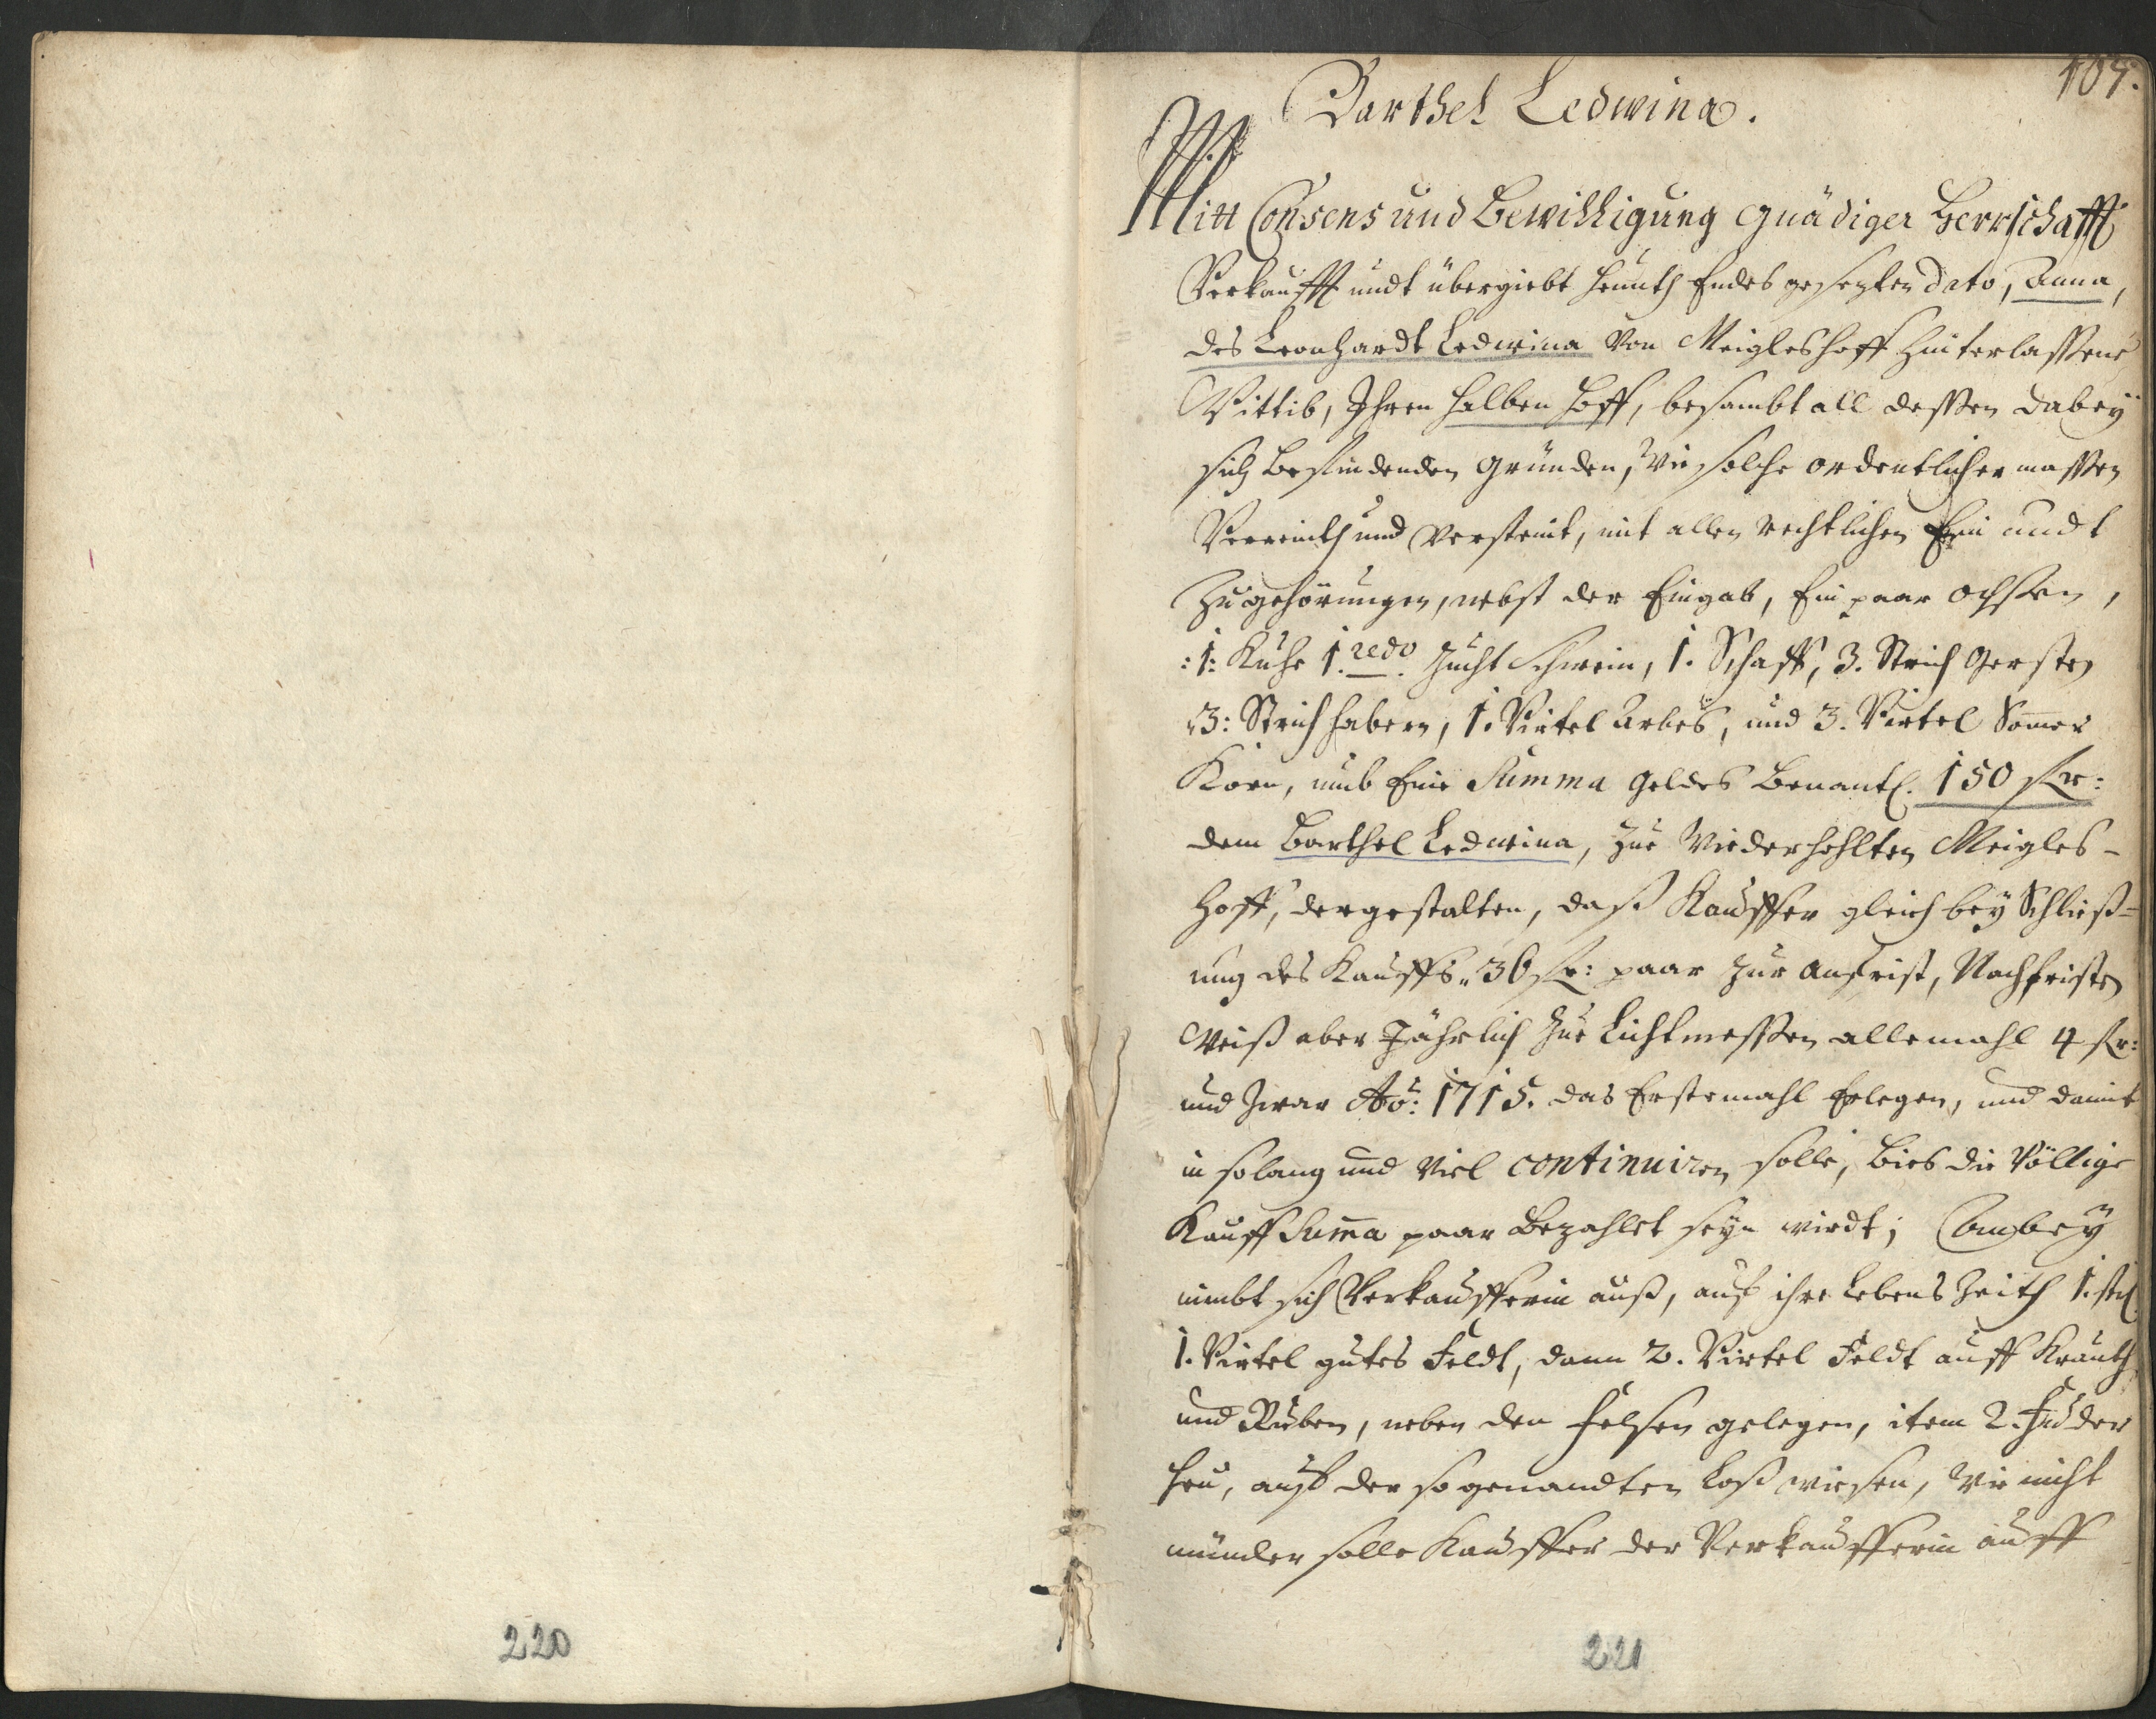 107.
Barthel Ledwina.
Mitt Consens und Bewilligung gnädiger Herrschafft
Verkaufft undt übergiebt heunth Endes gesezten Dato, Anna,
des Leonhardt Ledwina von Meigleshoff hinterlassene
Wittib, Ihren halben Hoff, besambt all dessen dabeÿ
sich befindenden Gründen, wie solche ordentlicher massen
Verreinth und versteint, mit allen rechtlichen Ein undt
Zugehörungen, nebst der Eingab, Ein paar ochsen,
:1: Kuhe 1. redo. Zucht Schwein, 1. Schaff, 3. Strich Gersten
3: Strich habern, 1. Virtel Arbes, und 3. Virtel Som̄er
Korn, umb Eine Summa geldes Benantl. 150 fl r:
dem Barthel Ledwina, zue Wiederhohlten Meigles-
hoff, dergestalten, daß Kauffer gleich beÿ Schließ=
ung des Kauffs 36 fl r: paar zur anfrist, Nachfristen
Weiß aber Jährlich zue Lichtmessen allemahl 4 fl r:
und zwar Ao: 1715. das Erstemahl Erlegen, und damit
in solang und viel continuiren solle, bies die Völlige
Kauff Sum̄a paar Bezahlet seÿn wirdt; Anbeÿ
nimbt sich Verkaufferin auß, auf ihre Lebens Zeith 1. str.
1. Virtel gutes Feldt, dann 2. Virtel Feldt auff Krauth
und Ruben, neben den Felsen gelegen, item 2. Fuder
heu, auf der so genandten Loß wiesen, Wie nicht
münder solle Kauffer der Verkaufferin auff
220
221